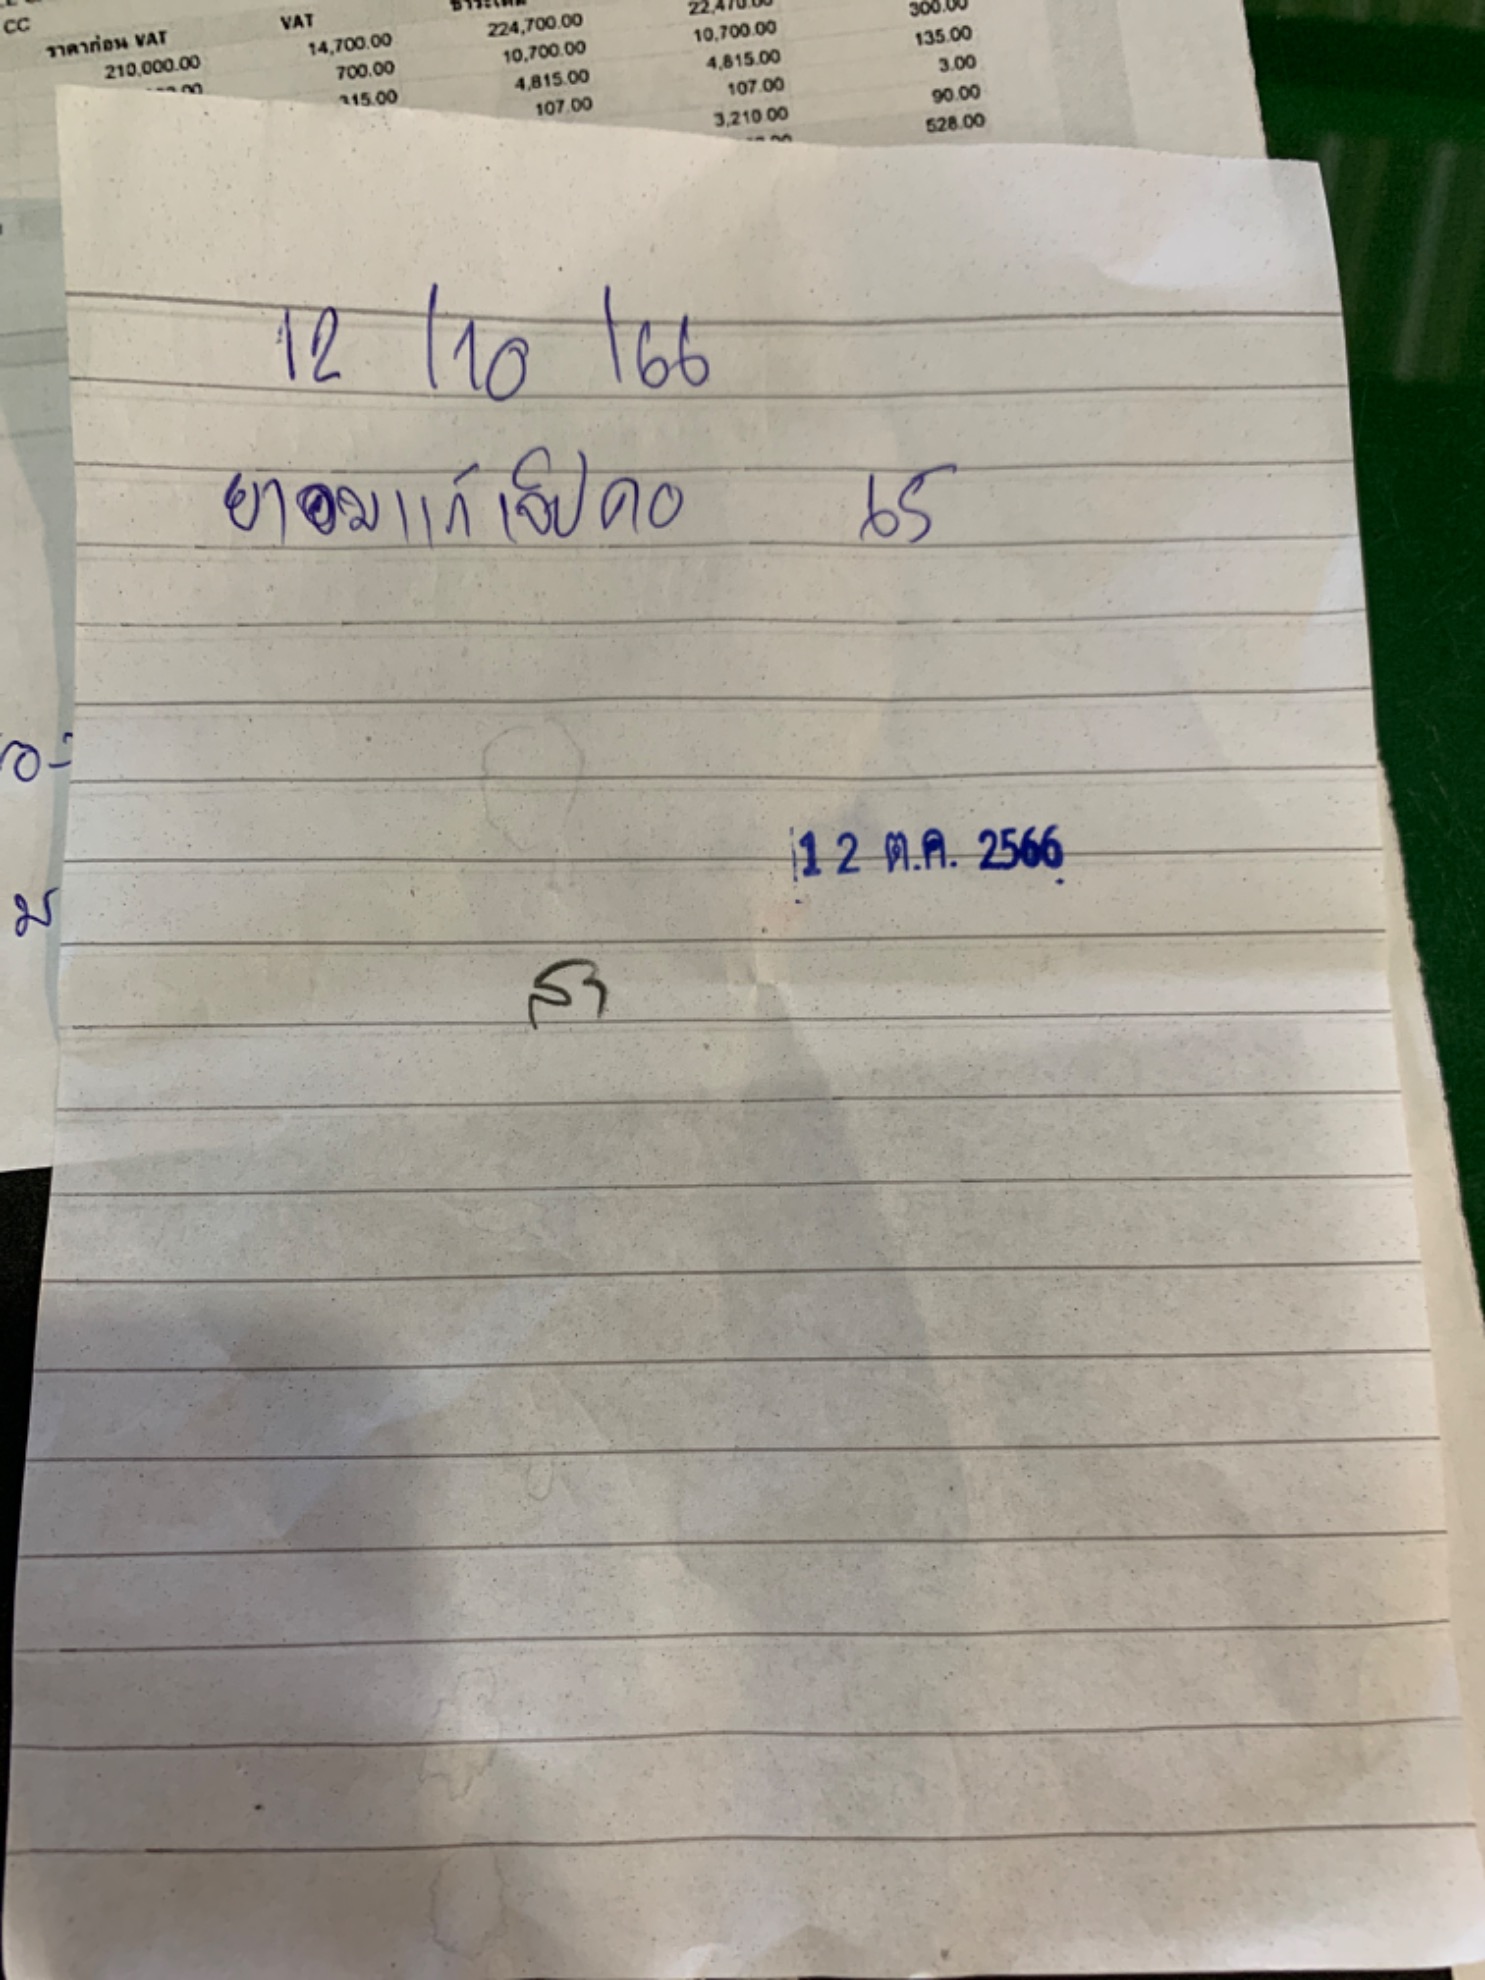 CC
ราคาก่อน VAT VAT
210,000.00 14,700.00 224,700.00 22,470.00 300.00
700.00 10,700.00 10,700.00 135.00
315.00 4,815.00 4,815.00 3.00
107.00 107.00 90.00
3,210.00 528.00
12 /10 /66
ยาอมแก้เจ็ปคอ 65
12 ต.ค. 2566